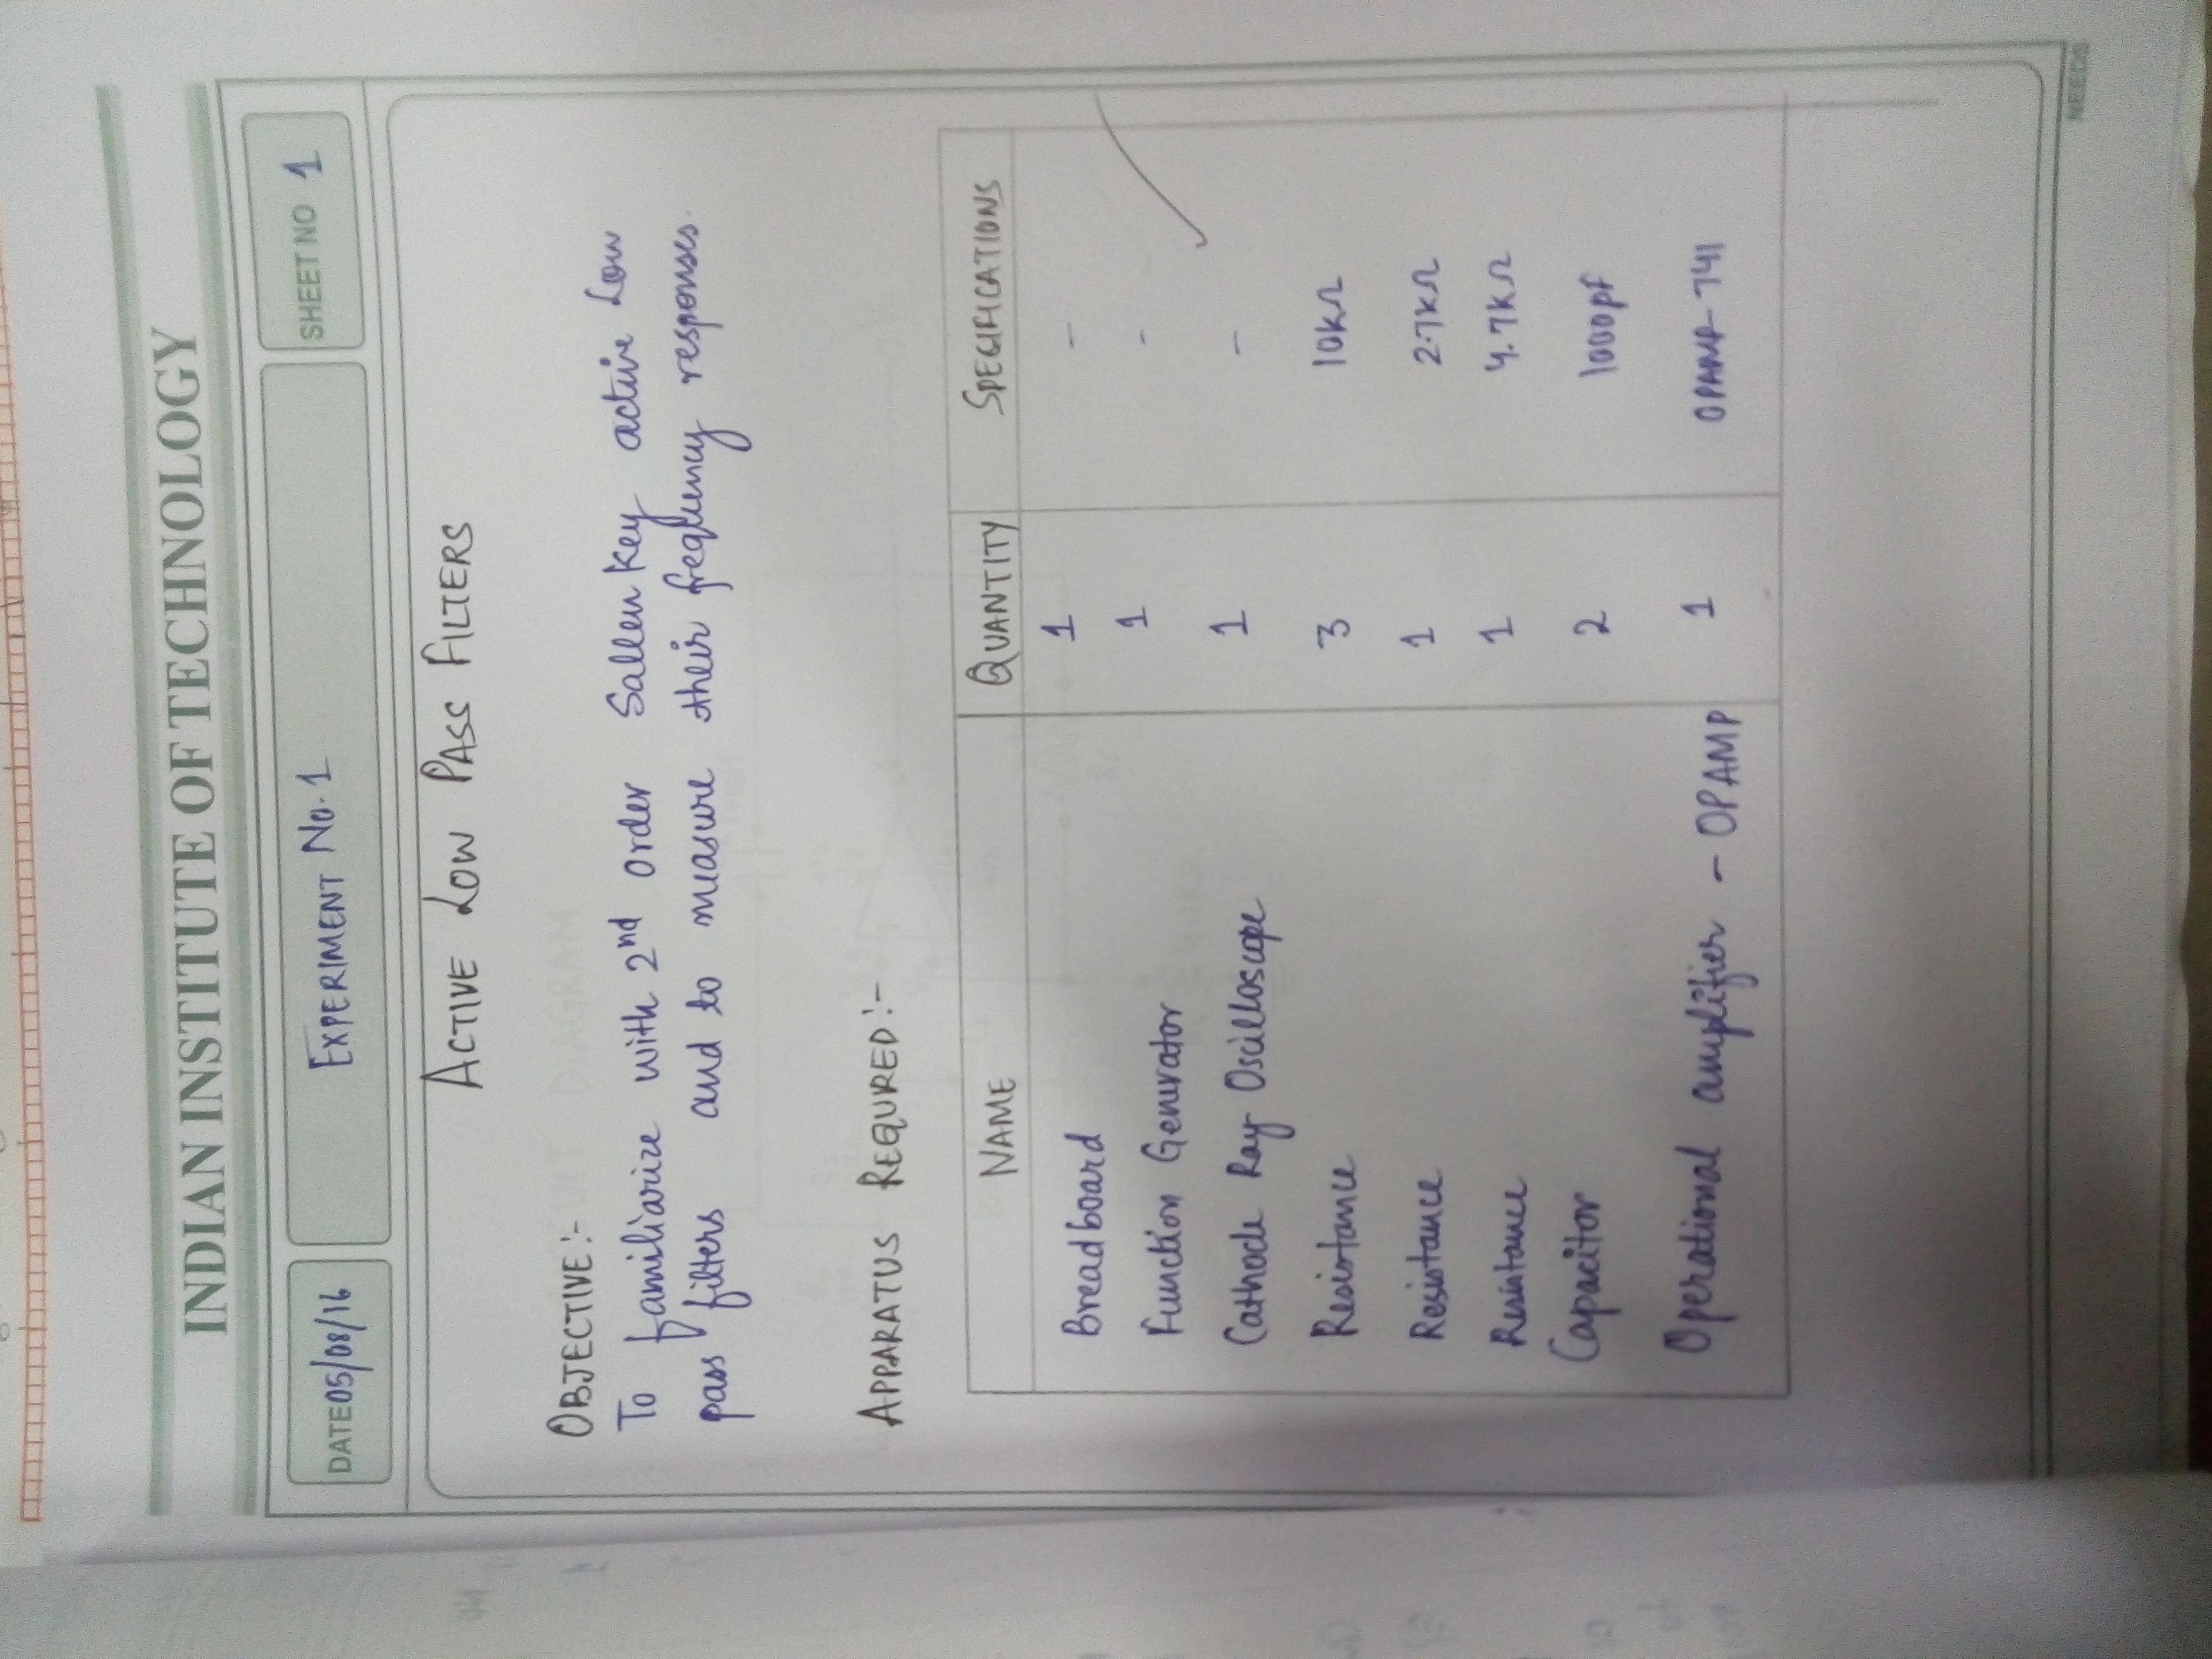 INDIAN INSTITUTE OF TECHNOLOGY
DATE 05/08/16 EXPERIMENT No. 1 SHEET NO 1
ACTIVE LOW PASS FILTERS
OBJECTIVE:-
To familiarize with 2nd order Sallen key active Low
pass filters and to measure their frequency responses.
APPARATUS REQURED:-
NAME QUANTITY SPECIFICATIONS
Breadboard 1 -
Function Generator 1 -
Cathode Ray Oscilloscope 1 -
Resistance 3 10kΩ
Resistance 1 2.7kΩ
Resistance 1 4.7kΩ
Capacitor 2 1000pf
Operational amplifier - OPAMP 1 OPAMP-741
NEEDS